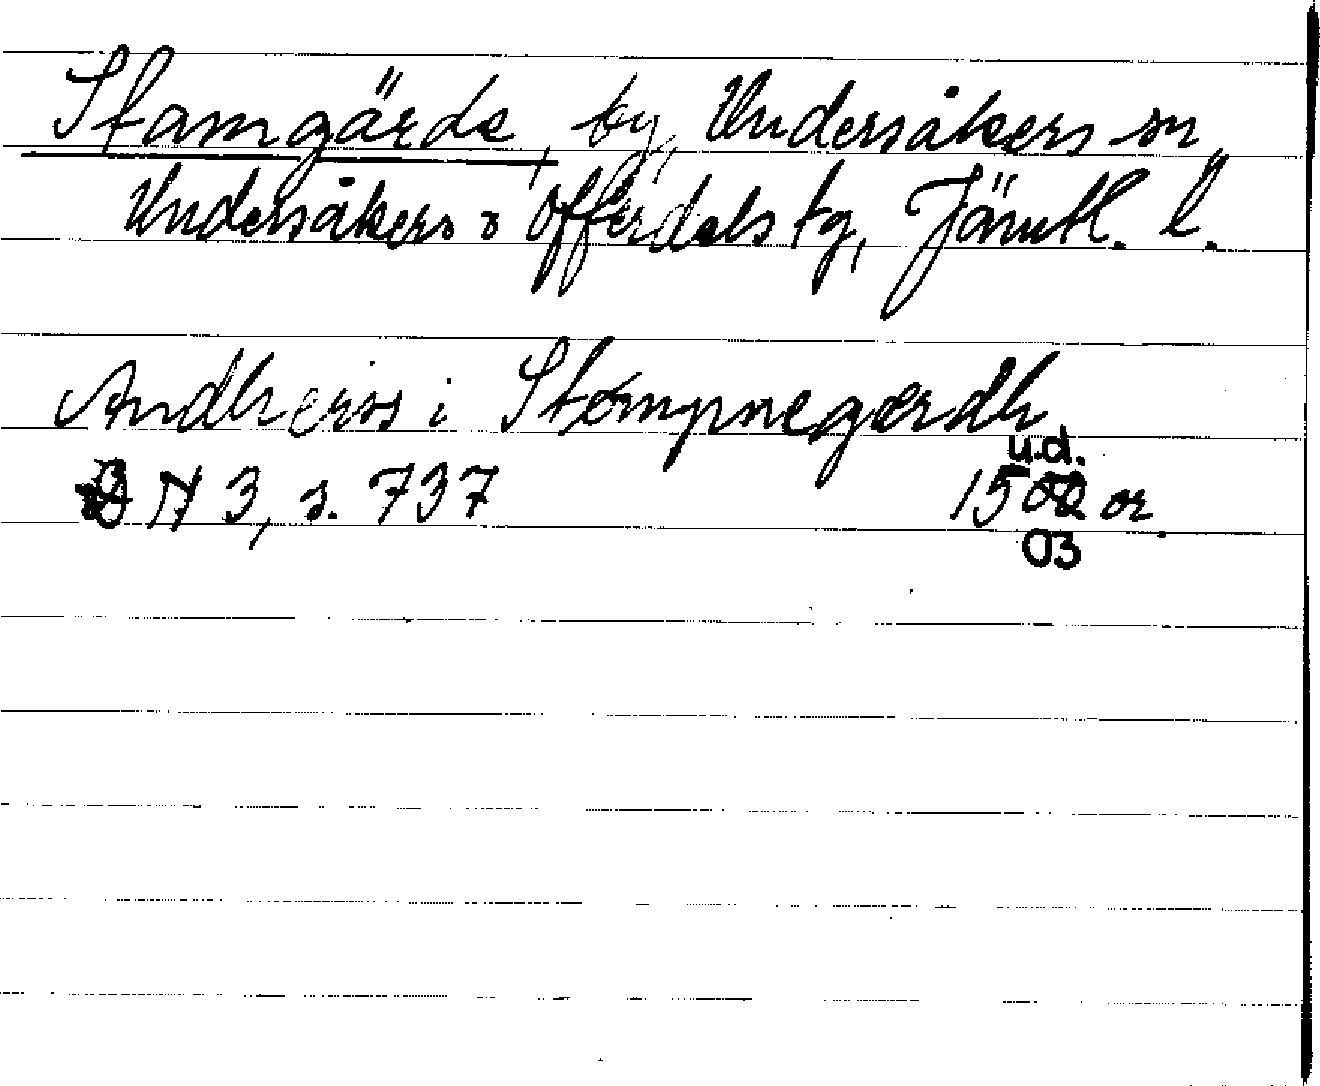 Stamgärde, by, Undersåkers sn,
Undersåkers o Offerdals tg, Jämtl. l.
Andheirs i Stompnegærdh
DN 3, s. 737 1502 or.
u.d.
03